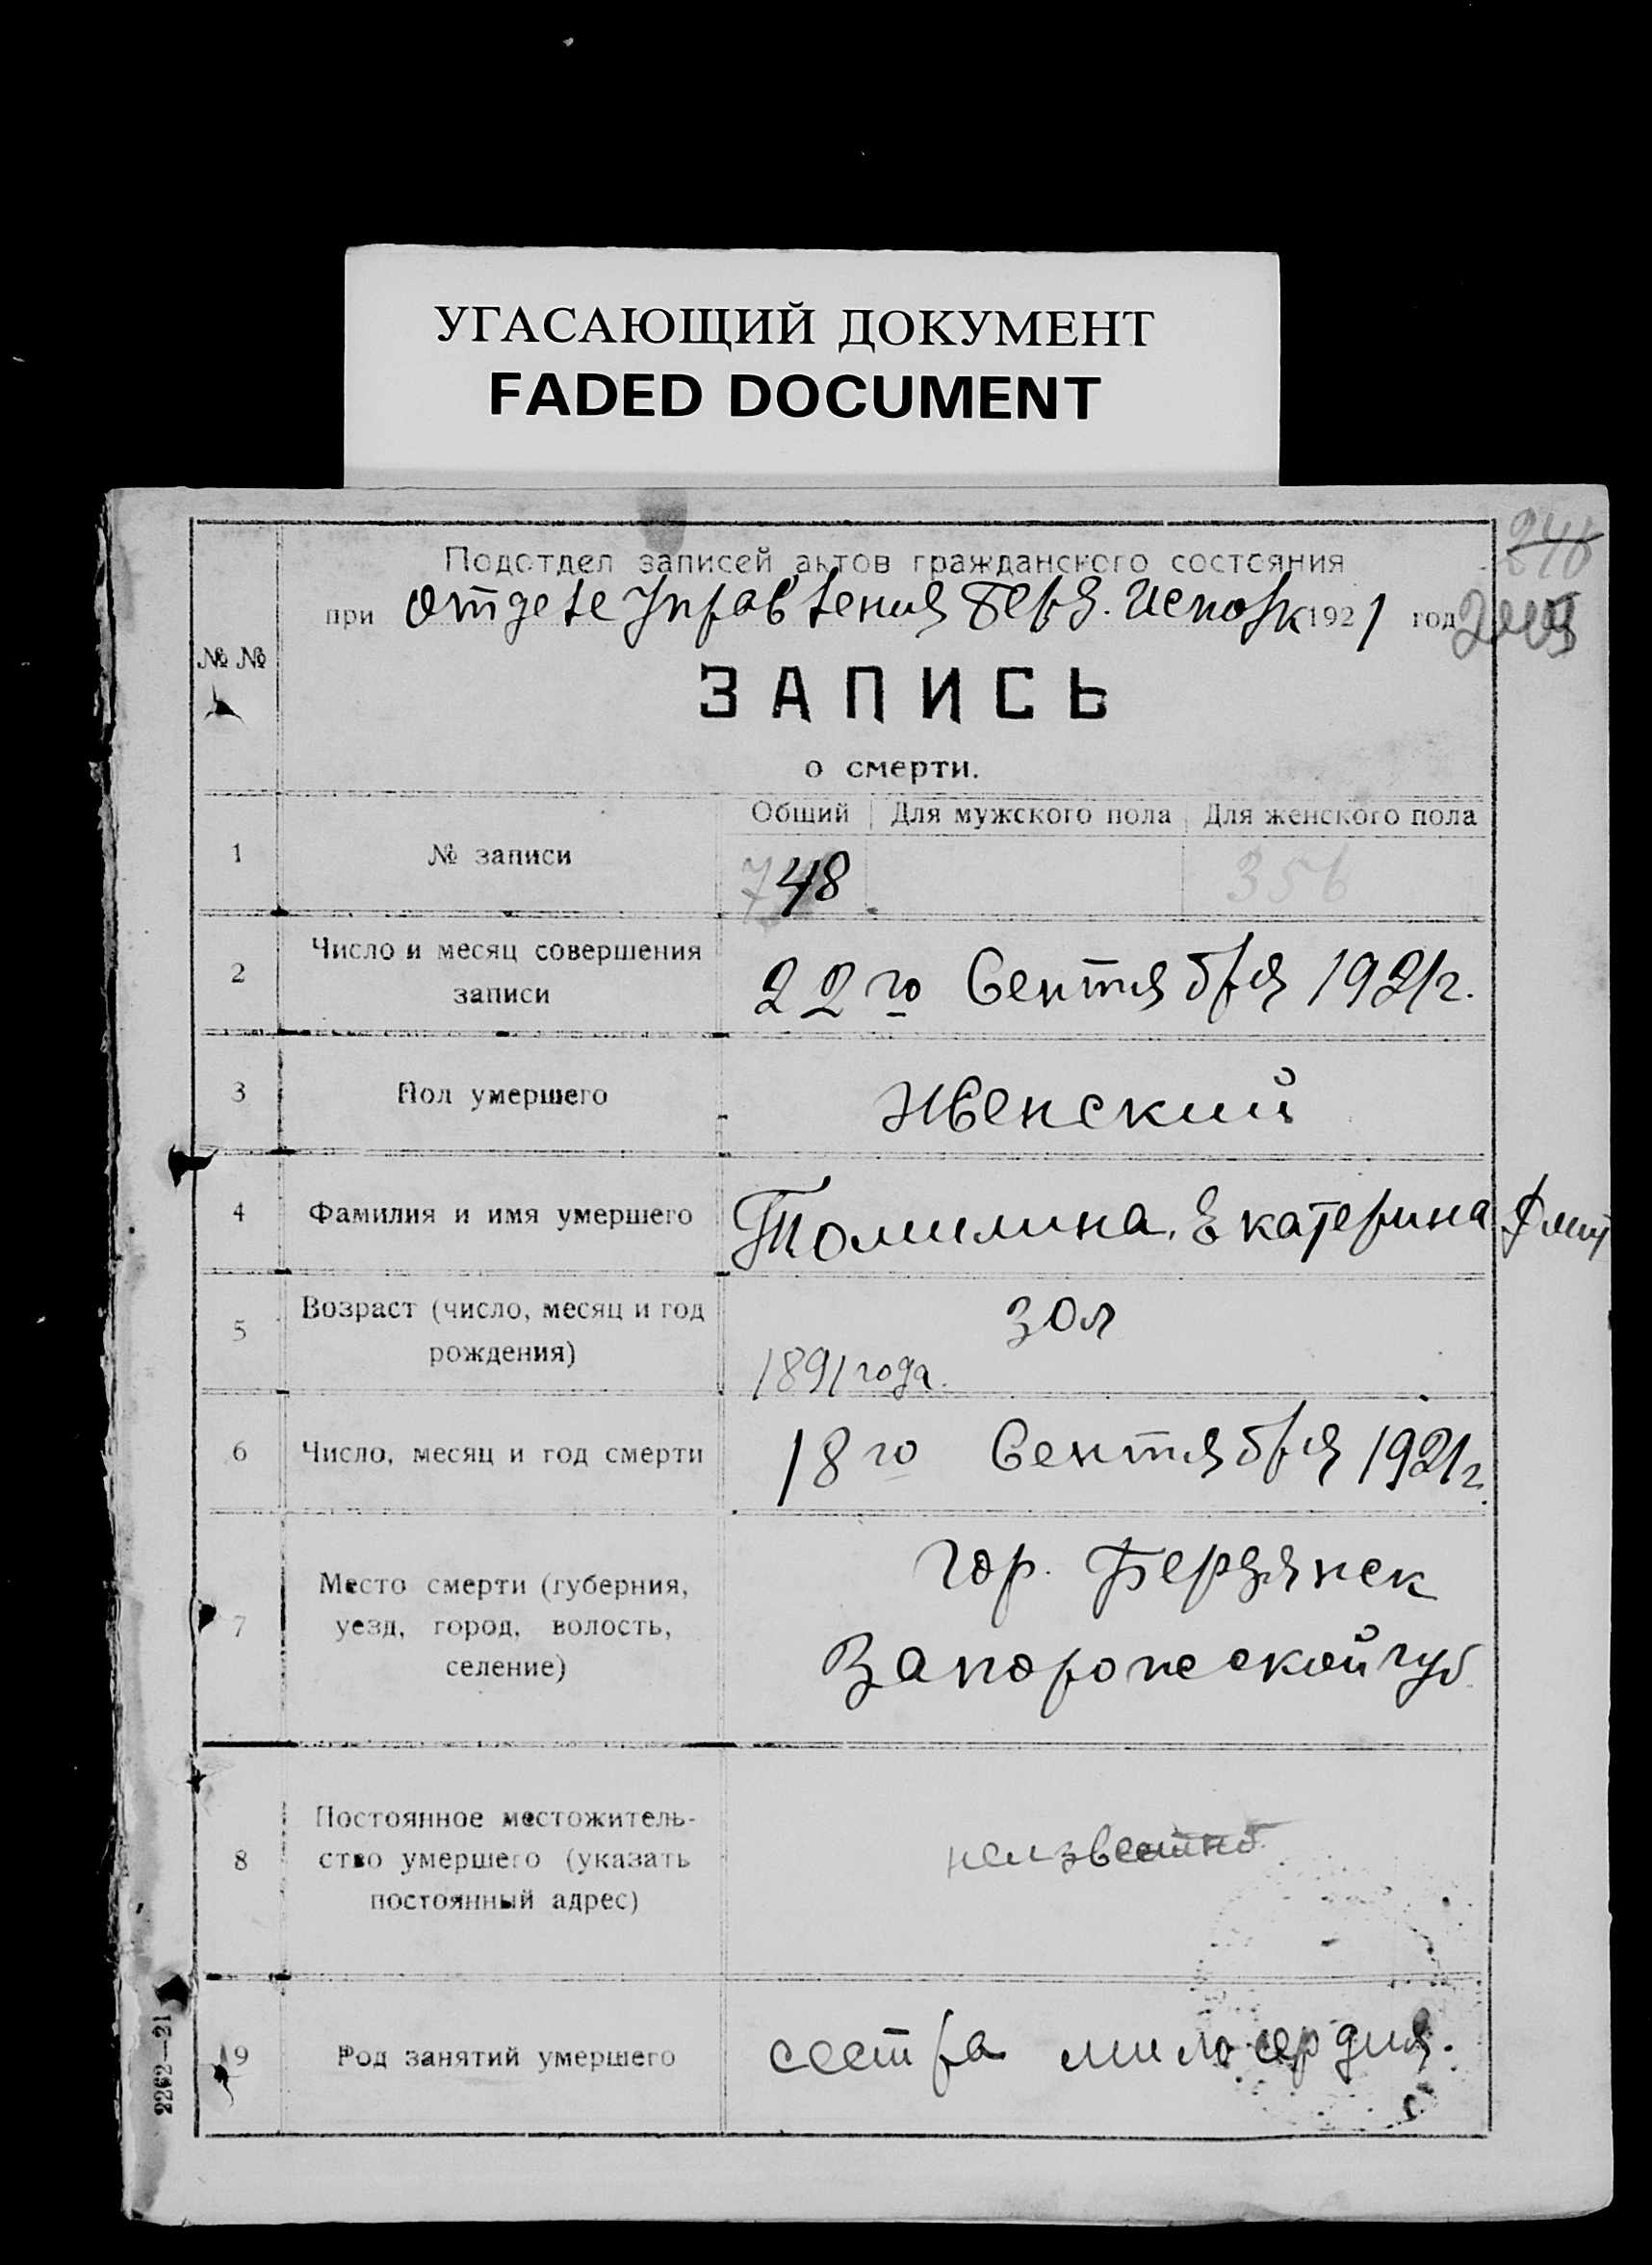 УГАСАЮЩИЙ ДОКУМЕНТ
FADED DOCUMENT
Подотдел записей актов гражданского состояния
при Отделе Управления Берд. Исполк 1921 год
№ №
ЗАПИСЬ
о смерти.
Общий Для мужского пола Для женского пола
1 № записи 748 356
2 Число и месяц совершения
записи 22го Сентября 1921г.
3 Пол умершего Женский
4 Фамилия и имя умершего Томилина, Екатерина Дмит
5 Возраст (число, месяц и год
рождения) 30л
1891 года.
6 Число, месяц и год смерти 18го Сентября 1921г.
7 Место смерти (губерния,
уезд, город, волость,
селение) гор. Бердянск
Запорожской губ
8 Постоянное местожитель-
ство умершего (указать
постоянный адрес) неизвестно
9 Род занятий умершего сестра милосердия.
2262—21